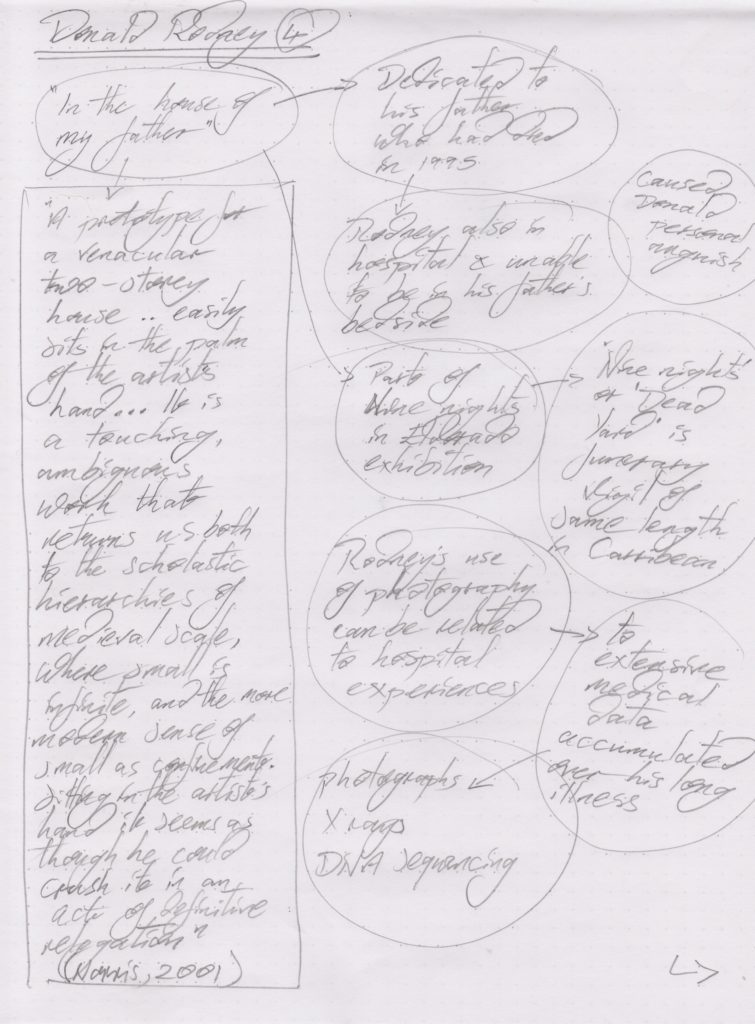 Donald Rodney (4)
"In the house of
my father"
Dedicated to
his father
who had died
in 1995
Rodney also in
hospital & unable
to be in his father's
bedside
caused
Donald
personal
anguish
"A prototype for
a venacular
two-storey
house .. easily
sits in the palm
of the artist's
hand... It is
a touching,
ambiguous,
work that
returns us both
to the scholastic
hierarchies of
medieval scale,
where small is
infinite, and the more
modern sense of
small as confinement.
Sitting in the artist's
hand it seems as
though he could
crush it in an
act of definitive
relegation"
(Norris, 2001)
Part of
Nine nights
in Eldorado
exhibition
'Nine nights'
or 'Dead
Yard' is
funerary
vigil of
same length
in Carribean
Rodney's use
of photography
can be related
to hospital
experiences
to
extensive
medical
data
accumulated
over his long
illness
photographs
X rays
DNA sequencing